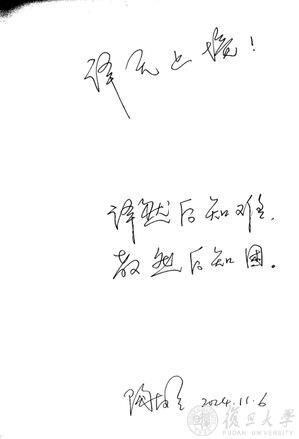 译无止境！
译然后知难，
教然后知困。
陶友兰 2024.11.6
復旦大學
FUDAN UNIVERSITY